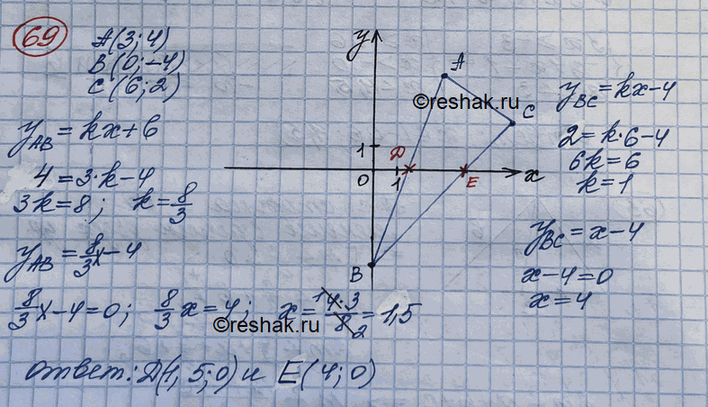 69
A(3; 4)
B(0; -4)
C(6; 2)
y_AB = kx + b
4 = 3·k - 4
3k = 8; k = 8/3
y_AB = 8/3 x - 4
8/3 x - 4 = 0; 8/3 x = 4; x = 4·3/8 = 1,5
1 2
y
A
C
©reshak.ru
1
D
0
1
E
x
B
y_BC = kx - 4
2 = k·6 - 4
6k = 6
k = 1
y_BC = x - 4
x - 4 = 0
x = 4
©reshak.ru
ответ: D(1,5; 0) и E(4; 0)